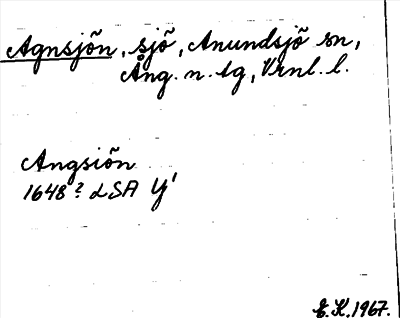 Agnsjön, sjö, Anundsjö sn,
Ång. n. tg, Vrnl. l.
Angsiön
1648? LSA Y¹
E.K. 1967.